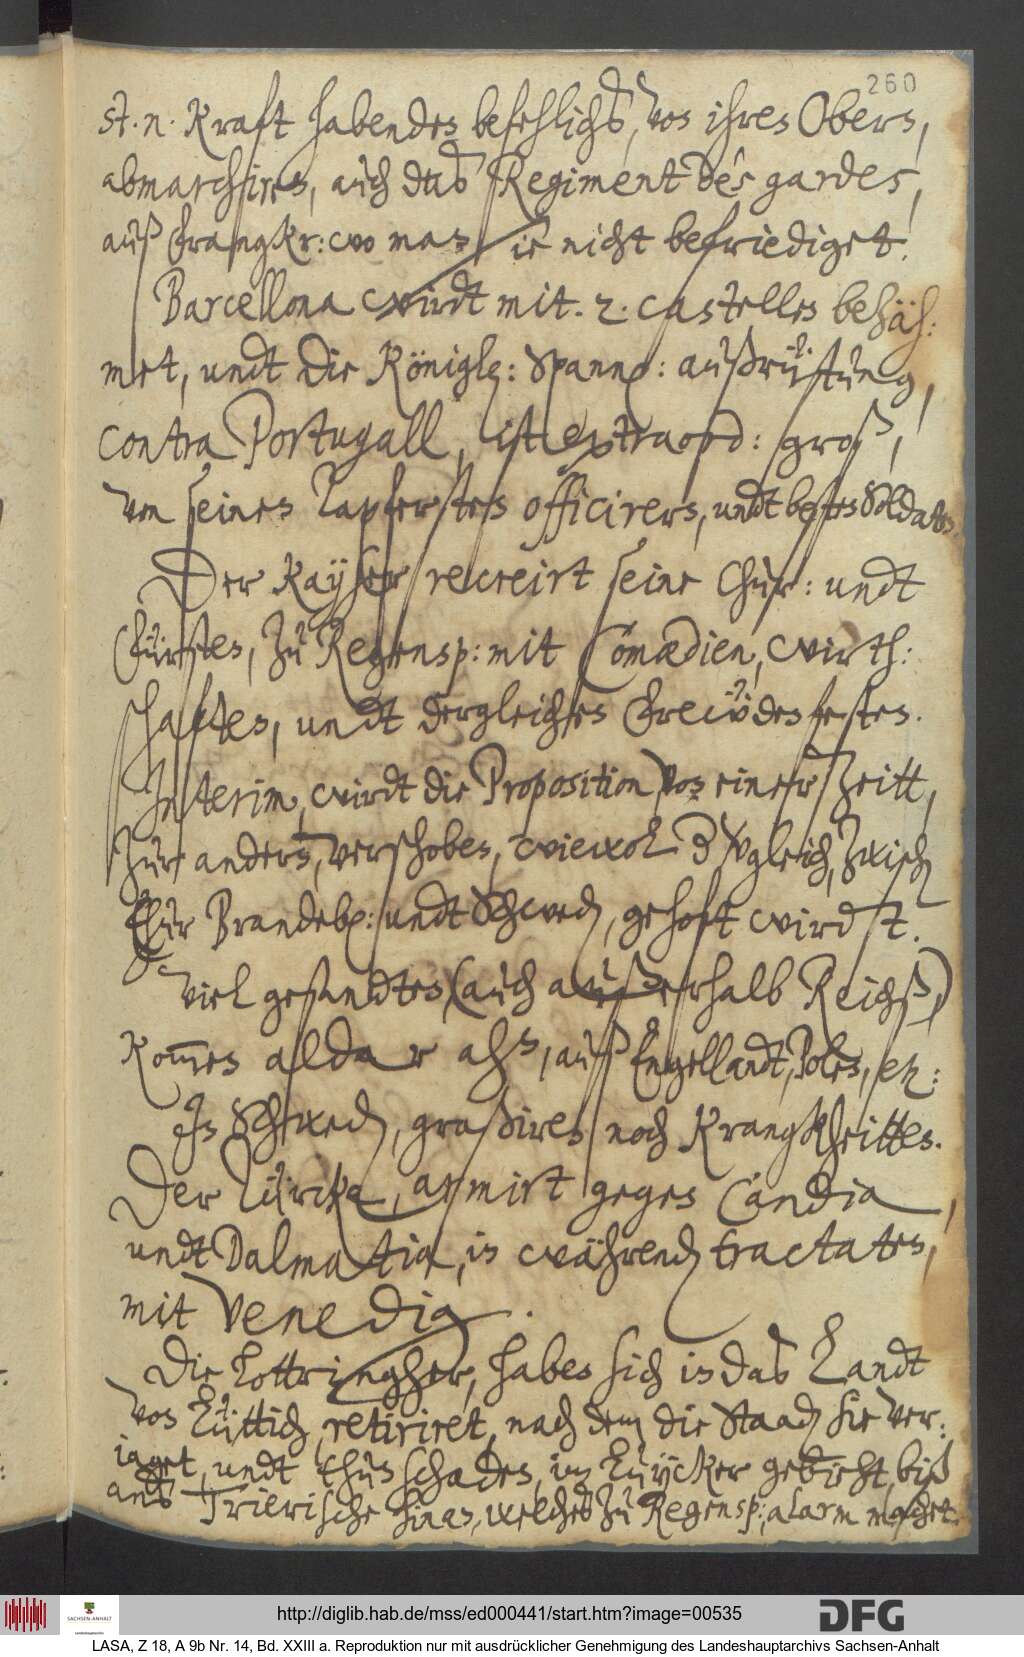 260
st. n. Kraft habenden befehlichs, von ihren Obern,
abmarchiren, auch das Regiment des gardes,
auß Frangkr: wo man sie nicht befriediget.
Barcellona wirdt mit. 2. castellen bezäh:
met, undt die Königl: Spann: außrüstung,
contra Portugall, ist extraord: groß,
von seinen Tapfersten officirern, undt besten Soldaten.
Der Kayser recreirt seine Chur: undt
Fürsten, zu Regensp: mit Comœdien, wirth:
schaften, undt dergleichen Frewdenfesten.
Interim, wirdt die Proposition von einer Zeitt,
zur andern, verschoben, wiewol d Vgleich, zwisch
Chur Brandeb: undt Schwed, gehoft wirdt.
Viel gesandten, (auch außerhalb Reichß,)
kommen aldar ahn, auß Engellandt, Polen, etc:
In Schwed, graßiren noch Krangkheitten.
Der Türcke, armirt gegen Candia,
undt Dalmatia, in während tractaten,
mit Venedig.
Die Lottringher, haben sich in das Landt
von Lüttich, retiriret, nach dem die Staad sie ver:
iaget, undt thun schaden, im Luycker gebieht, biß
ans Trierische hinan, welches zu Regensp: alarm machet.
http://diglib.hab.de/mss/ed000441/start.htm?image=00535
SACHSEN-ANHALT
DFG
LASA, Z 18, A 9b Nr. 14, Bd. XXIII a. Reproduktion nur mit ausdrücklicher Genehmigung des Landeshauptarchivs Sachsen-Anhalt